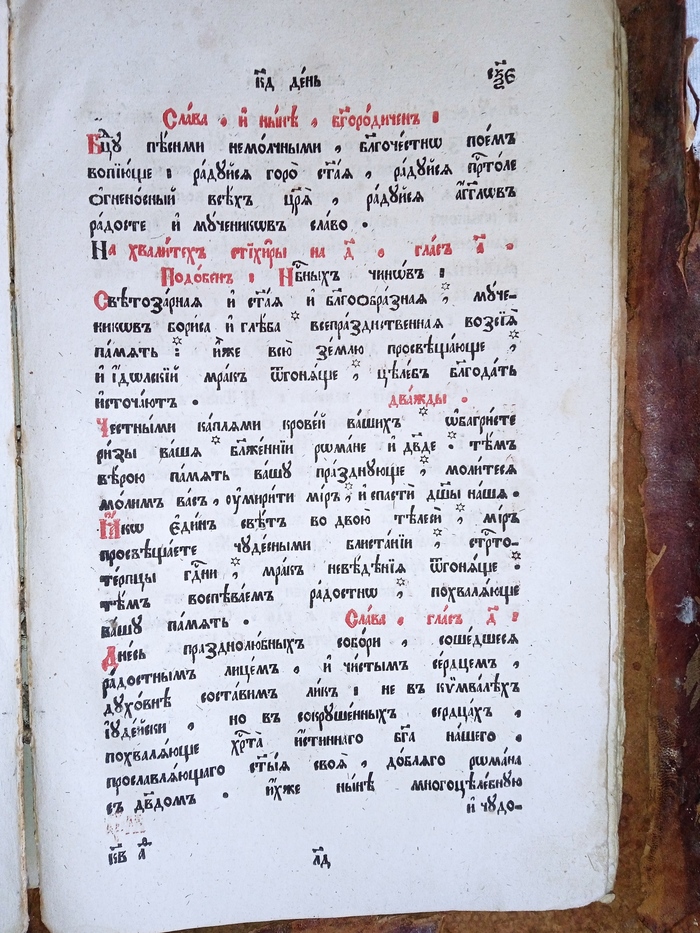 к҃д де́нь
Сла́ва , и҆ ны́нѣ , бг҃оро́диченъ :
Бц҃у пѣ́сньми немо́лчными , бл҃гоче́стнѡ пое́мъ
вопїю́ще : ра́дуйся горо̀ ст҃а́я , ра́дуйся прт҃о́ле
о҆гнено́сный всѣ́хъ цр҃я̀ , ра́дуйся а҆́гг҃лѡвъ
ра́досте и҆ мч҃никѡвъ сла́во .
На хвали́техъ стїхи́ры на д҃ . гла́съ д҃ .
Подо́бенъ : Нбⷭ҇ныхъ чинѡ́въ :
Свѣтоза́рная и҆ ст҃а́я и҆ бл҃гоѻбра́зная , мч҃е-
никѡвъ бори́са и҆ глѣ́ба * всепра́зднственная возсїѧ̀
па́мять : ꙗ҆́же всю̀ зе́млю просвѣща́юще *
и҆ і҆́дѡльскїй мра́къ ѿгоня́ще * цѣле́бъ бл҃года́ть
и҆сточа́ютъ . два́жды .
Честны́ми ка́плями крове́й ва́шихъ * ѡ҆багри́сте
ри́зы ва́шя * бл҃же́ннїи рѡма́не и҆ дв҃де . тѣ́мъ
вѣ́рою па́мять ва́шу пра́зднующе * моли́теся
мо́лимъ ва́съ , ѹ҆мири́ти мі́ръ , и҆ спастѝ дш҃ы на́шя .
Ꙗ҆́кѡ є҆ди́нъ свѣ́тъ во двою̀ тѣ́лесѝ * мі́ръ
просвѣща́ете чуде́сными блиста́нїи , стрⷭ҇то-
те́рпцы гдⷭ҇ни * мра́къ невѣ́дѣнїя ѿгоня́юще .
тѣ́мъ воспѣва́емъ ра́достнѡ * похваля́юще
ва́шу па́мять . Сла́ва , гла́съ д҃ :
Дне́сь празднолю́бныхъ собо́ри , соше́дшеся
ра́достнымъ лице́мъ , и҆ чи́стымъ се́рдцемъ ,
духо́внѣ соста́вимъ ли́къ : не въ кѵмва́лѣхъ
і҆уде́йски , но въ сокруше́нныхъ сердца́хъ .
похваля́юще хрⷭ҇та̀ и҆́стиннаго бг҃а на́шего .
прославля́ющаго ст҃ы́я своѧ̀ , до́бляго рѡма́на
съ дв҃домъ . и҆́хже ны́нѣ многоцѣле́бную
и҆ чудо-
к҃в а҃
л҃д